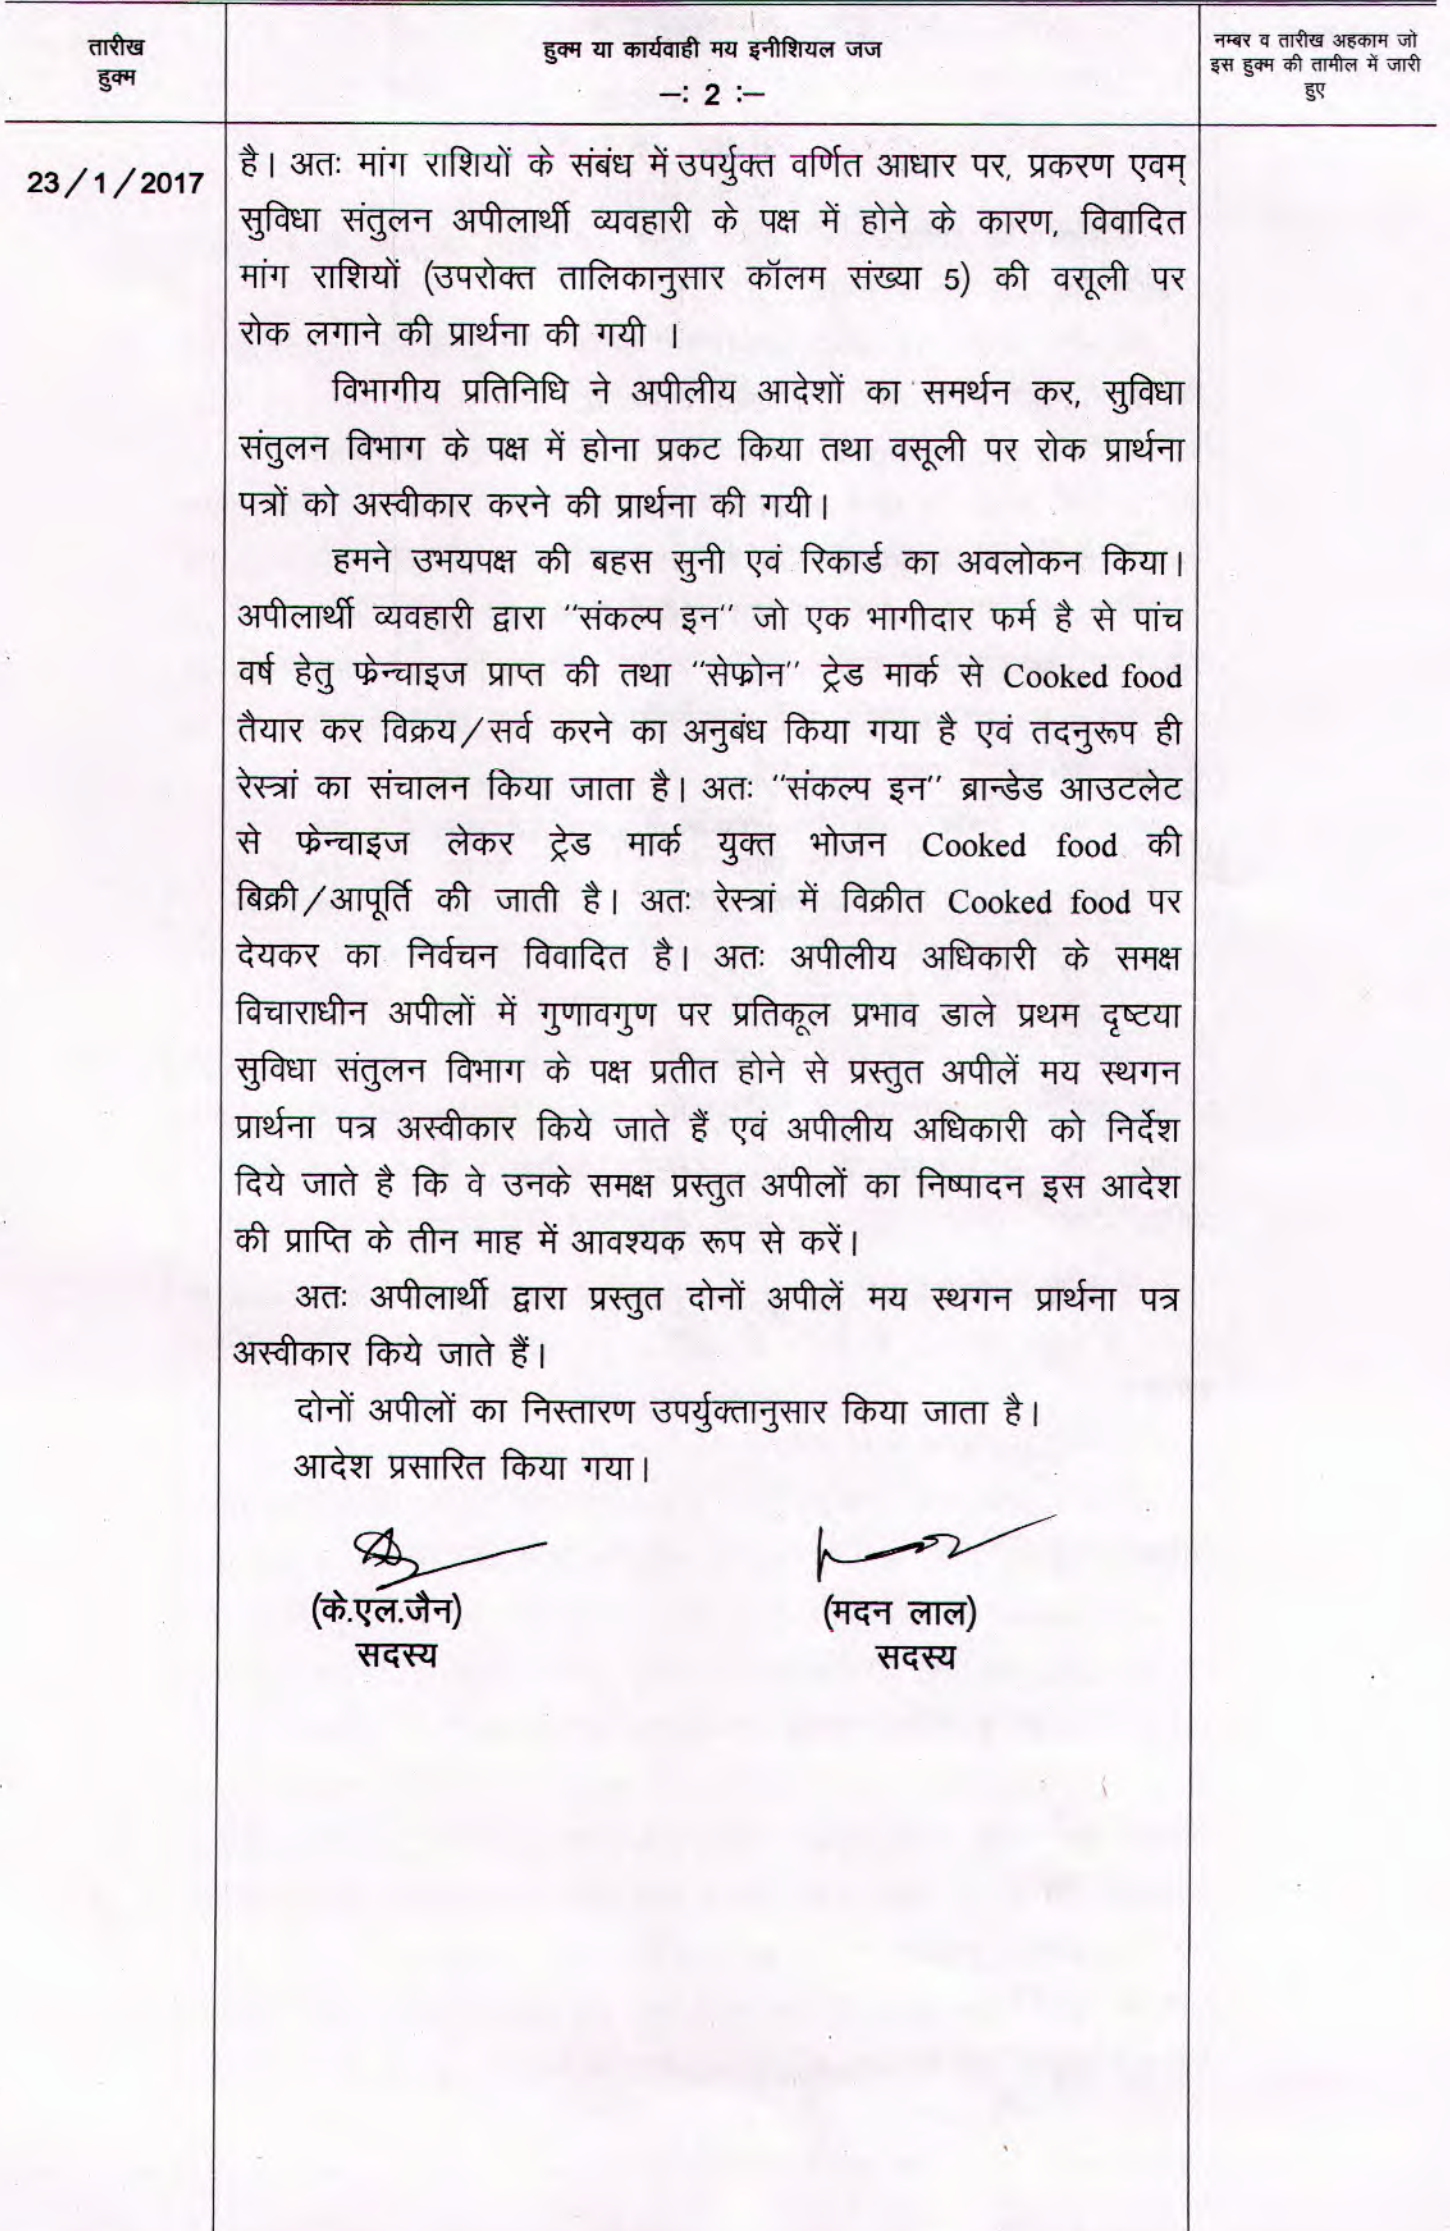 तारीख
हुक्म
हुक्म या कार्यवाही मय इनीशियल जज
—: 2 :—
नम्बर व तारीख अहकाम जो
इस हुक्म की तामील में जारी
हुए
23/1/2017
है। अतः मांग राशियों के संबंध में उपर्युक्त वर्णित आधार पर, प्रकरण एवम्
सुविधा संतुलन अपीलार्थी व्यवहारी के पक्ष में होने के कारण, विवादित
मांग राशियों (उपरोक्त तालिकानुसार कॉलम संख्या 5) की वसूली पर
रोक लगाने की प्रार्थना की गयी ।
विभागीय प्रतिनिधि ने अपीलीय आदेशों का समर्थन कर, सुविधा
संतुलन विभाग के पक्ष में होना प्रकट किया तथा वसूली पर रोक प्रार्थना
पत्रों को अस्वीकार करने की प्रार्थना की गयी।
हमने उभयपक्ष की बहस सुनी एवं रिकार्ड का अवलोकन किया।
अपीलार्थी व्यवहारी द्वारा "संकल्प इन" जो एक भागीदार फर्म है से पांच
वर्ष हेतु फ्रेन्चाइज प्राप्त की तथा "सेफ्रोन" ट्रेड मार्क से Cooked food
तैयार कर विक्रय/सर्व करने का अनुबंध किया गया है एवं तदनुरूप ही
रेस्त्रां का संचालन किया जाता है। अतः "संकल्प इन" ब्रान्डेड आउटलेट
से फ्रेन्चाइज लेकर ट्रेड मार्क युक्त भोजन Cooked food की
बिक्री/आपूर्ति की जाती है। अतः रेस्त्रां में विक्रीत Cooked food पर
देयकर का निर्वचन विवादित है। अतः अपीलीय अधिकारी के समक्ष
विचाराधीन अपीलों में गुणावगुण पर प्रतिकूल प्रभाव डाले प्रथम दृष्टया
सुविधा संतुलन विभाग के पक्ष प्रतीत होने से प्रस्तुत अपीलें मय स्थगन
प्रार्थना पत्र अस्वीकार किये जाते हैं एवं अपीलीय अधिकारी को निर्देश
दिये जाते है कि वे उनके समक्ष प्रस्तुत अपीलों का निष्पादन इस आदेश
की प्राप्ति के तीन माह में आवश्यक रूप से करें।
अतः अपीलार्थी द्वारा प्रस्तुत दोनों अपीलें मय स्थगन प्रार्थना पत्र
अस्वीकार किये जाते हैं।
दोनों अपीलों का निस्तारण उपर्युक्तानुसार किया जाता है।
आदेश प्रसारित किया गया।
(के.एल.जैन)
सदस्य
(मदन लाल)
सदस्य